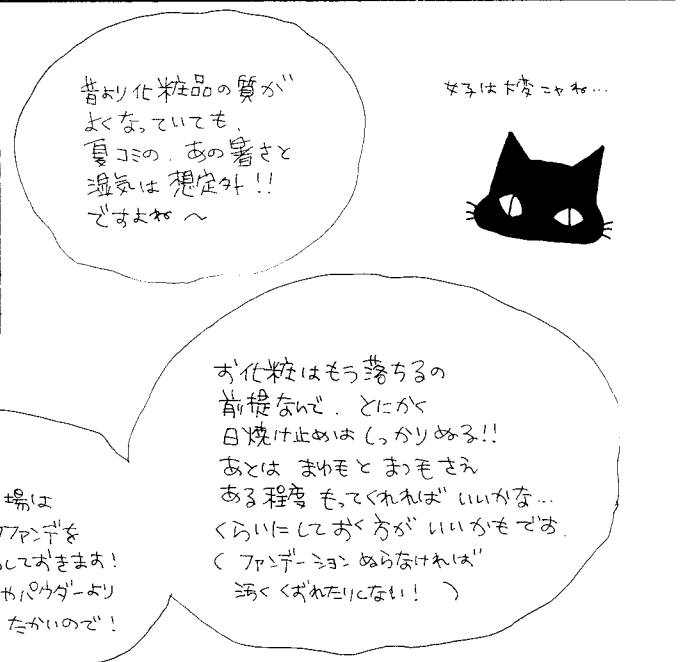 昔より化粧品の質が
よくなっていても、
夏コミの、あの暑さと
湿気は想定外!!
ですよね〜
女子は大変ニャね…
お化粧はもう落ちるの
前提なんで、とにかく
日焼け止めはしっかりぬる!!
あとは まゆ毛と まつ毛さえ
ある程度 もってくれれば いいかな…
くらいにしておく方が いいかもです。
( ファンデーション ぬらなければ
汚く くずれたりしない! )
場は
ファンデを
しておきます!
やパウダーより
たかいので!